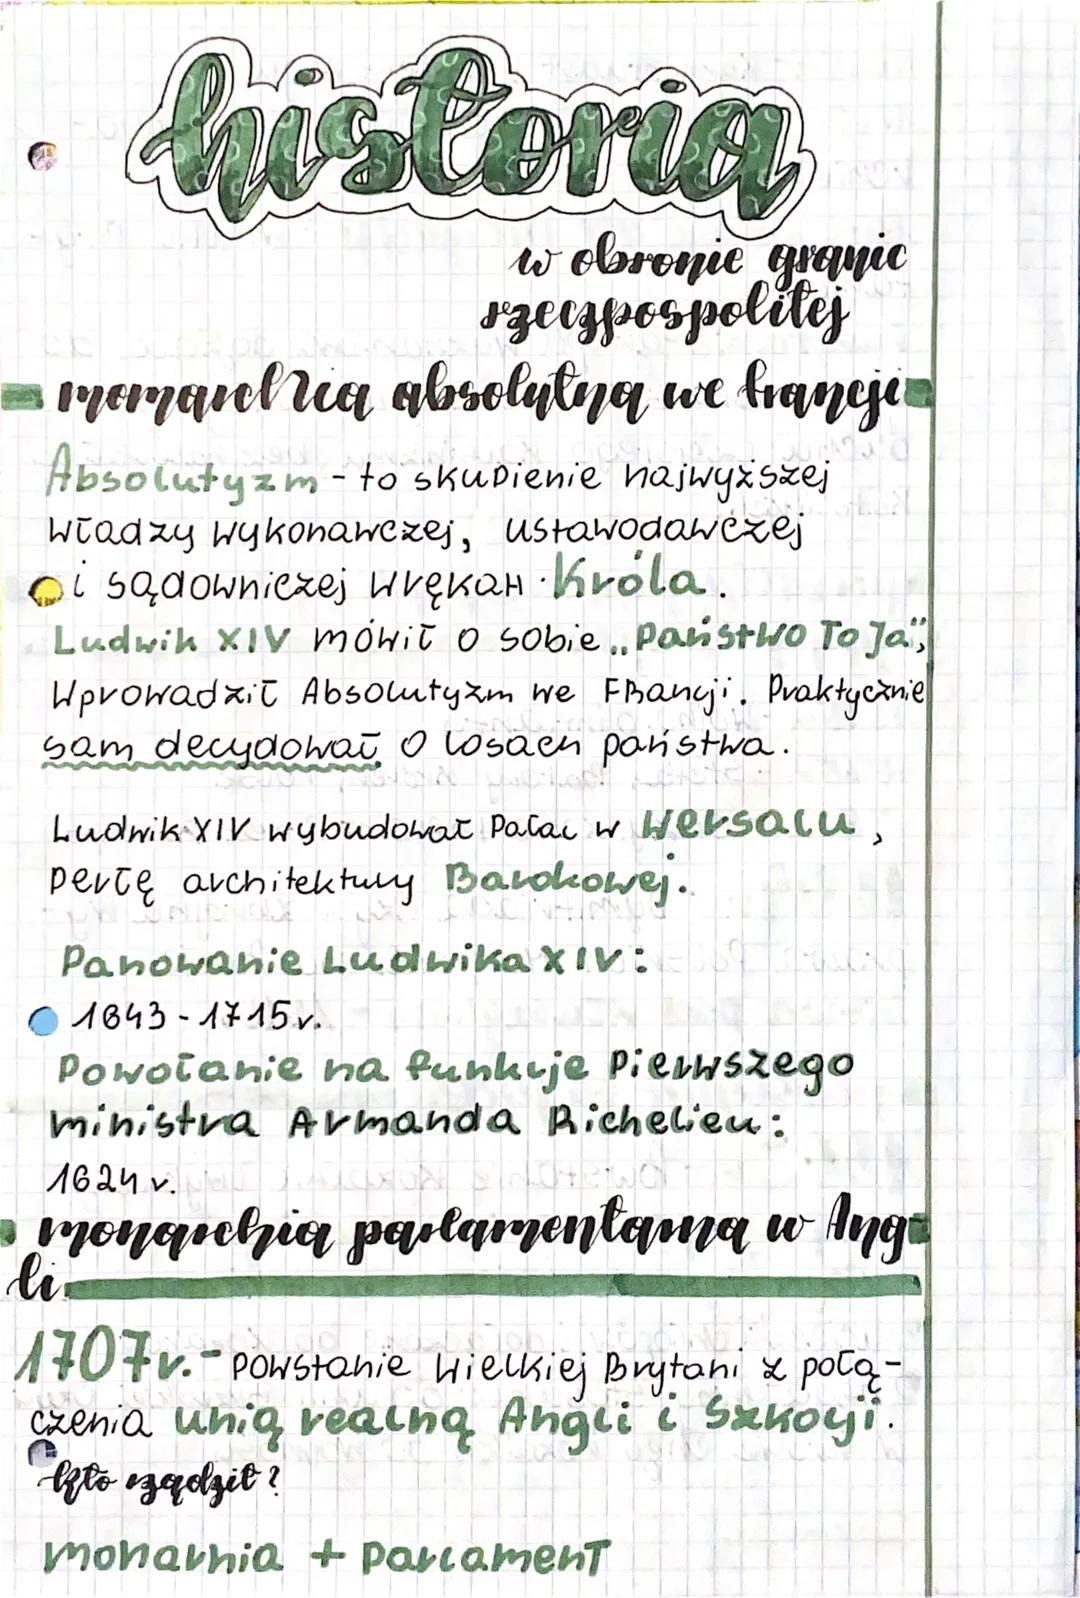 historia
w obronie granic
rzeczpospolitej
monarchia absolutna we francji
Absolutyzm - to skupienie najwyższej
władzy wykonawczej, ustawodawczej
i sądowniczej w rękah Króla.
Ludwik XIV mówił o sobie „Państwo To Ja",
Wprowadził Absolutyzm we Francji. Praktycznie
sam decydował o losach państwa.
Ludwik XIV wybudował Pałac w Wersalu,
perłę architektury Barokowej.
Panowanie Ludwika XIV:
1643 - 1715 r.
Powołanie na funkcje Pierwszego
ministra Armanda Richelieu:
1624 r.
monarchia parlamentarna w Ang
li
1707r. - powstanie Wielkiej Brytani z połą-
czenia unią realną Angli i Szkocji.
kto rządził?
monarhia + parlament